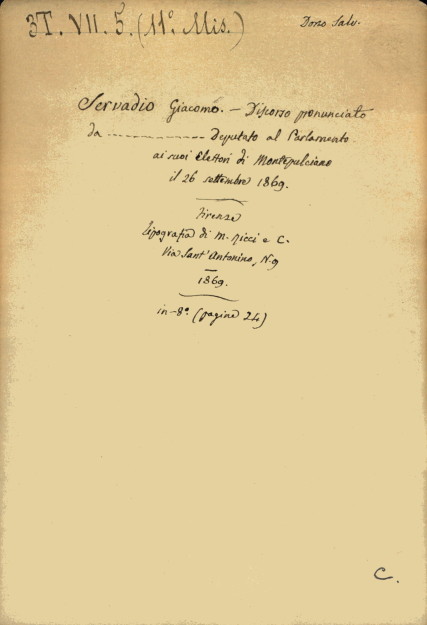 3T. VII. 5. (11º Mis.)
Dono Salv.
Servadio Giacomo. — Discorso pronunciato
da ------------ Deputato al Parlamento
ai suoi Elettori di Montepulciano
il 26 settembre 1869.
Firenze
Tipografia di M. Ricci e C.
Via Sant'Antonino, N. 9
1869.
in-8º (pagine 24)
C.